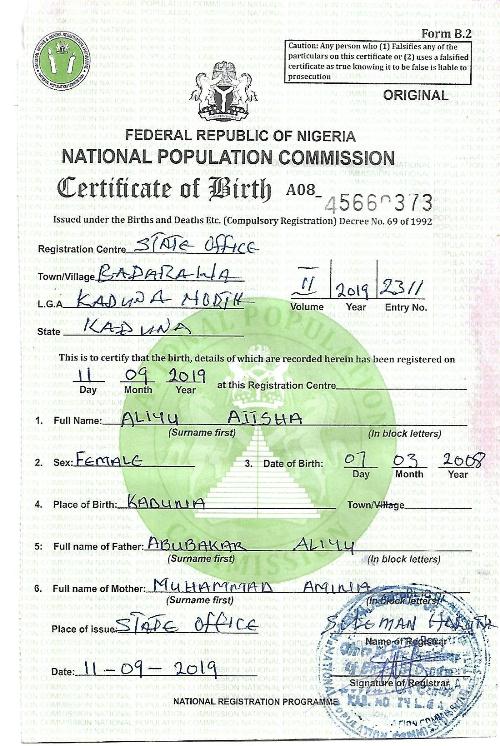 Form B.2
Caution: Any person who (1) Falsifies any of the
particulars on this certificate or (2) uses a falsified
certificate as true knowing it to be false is liable to
prosecution
ORIGINAL
FEDERAL REPUBLIC OF NIGERIA
NATIONAL POPULATION COMMISSION
Certificate of Birth A08_
Issued under the Births and Deaths Etc. (Compulsory Registration) Decree No. 69 of 1992
Registration Centre STATE OFFICE
Town/Village BADARAWA
L.G.A KADUNA NORTH
II 2019 2311
Volume Year Entry No.
State KADUNA
This is to certify that the birth, details of which are recorded herein has been registered on
11 09 2019 at this Registration Centre
Day Month Year
1. Full Name: ALIYU AIISHA
(Surname first) (In block letters)
2. Sex: FEMALE 3. Date of Birth: 07 03 2008
Day Month Year
4. Place of Birth: KADUNA Town/Village
5: Full name of Father: ABUBAKAR ALIYU
(Surname first) (In block letters)
6. Full name of Mother: MUHAMMAD AMINA
(Surname first) (In block letters)
Place of issue: STATE OFFICE
Name of Registrar
Date: 11-09-2019
Signature of Registrar
NATIONAL REGISTRATION PROGRAMME